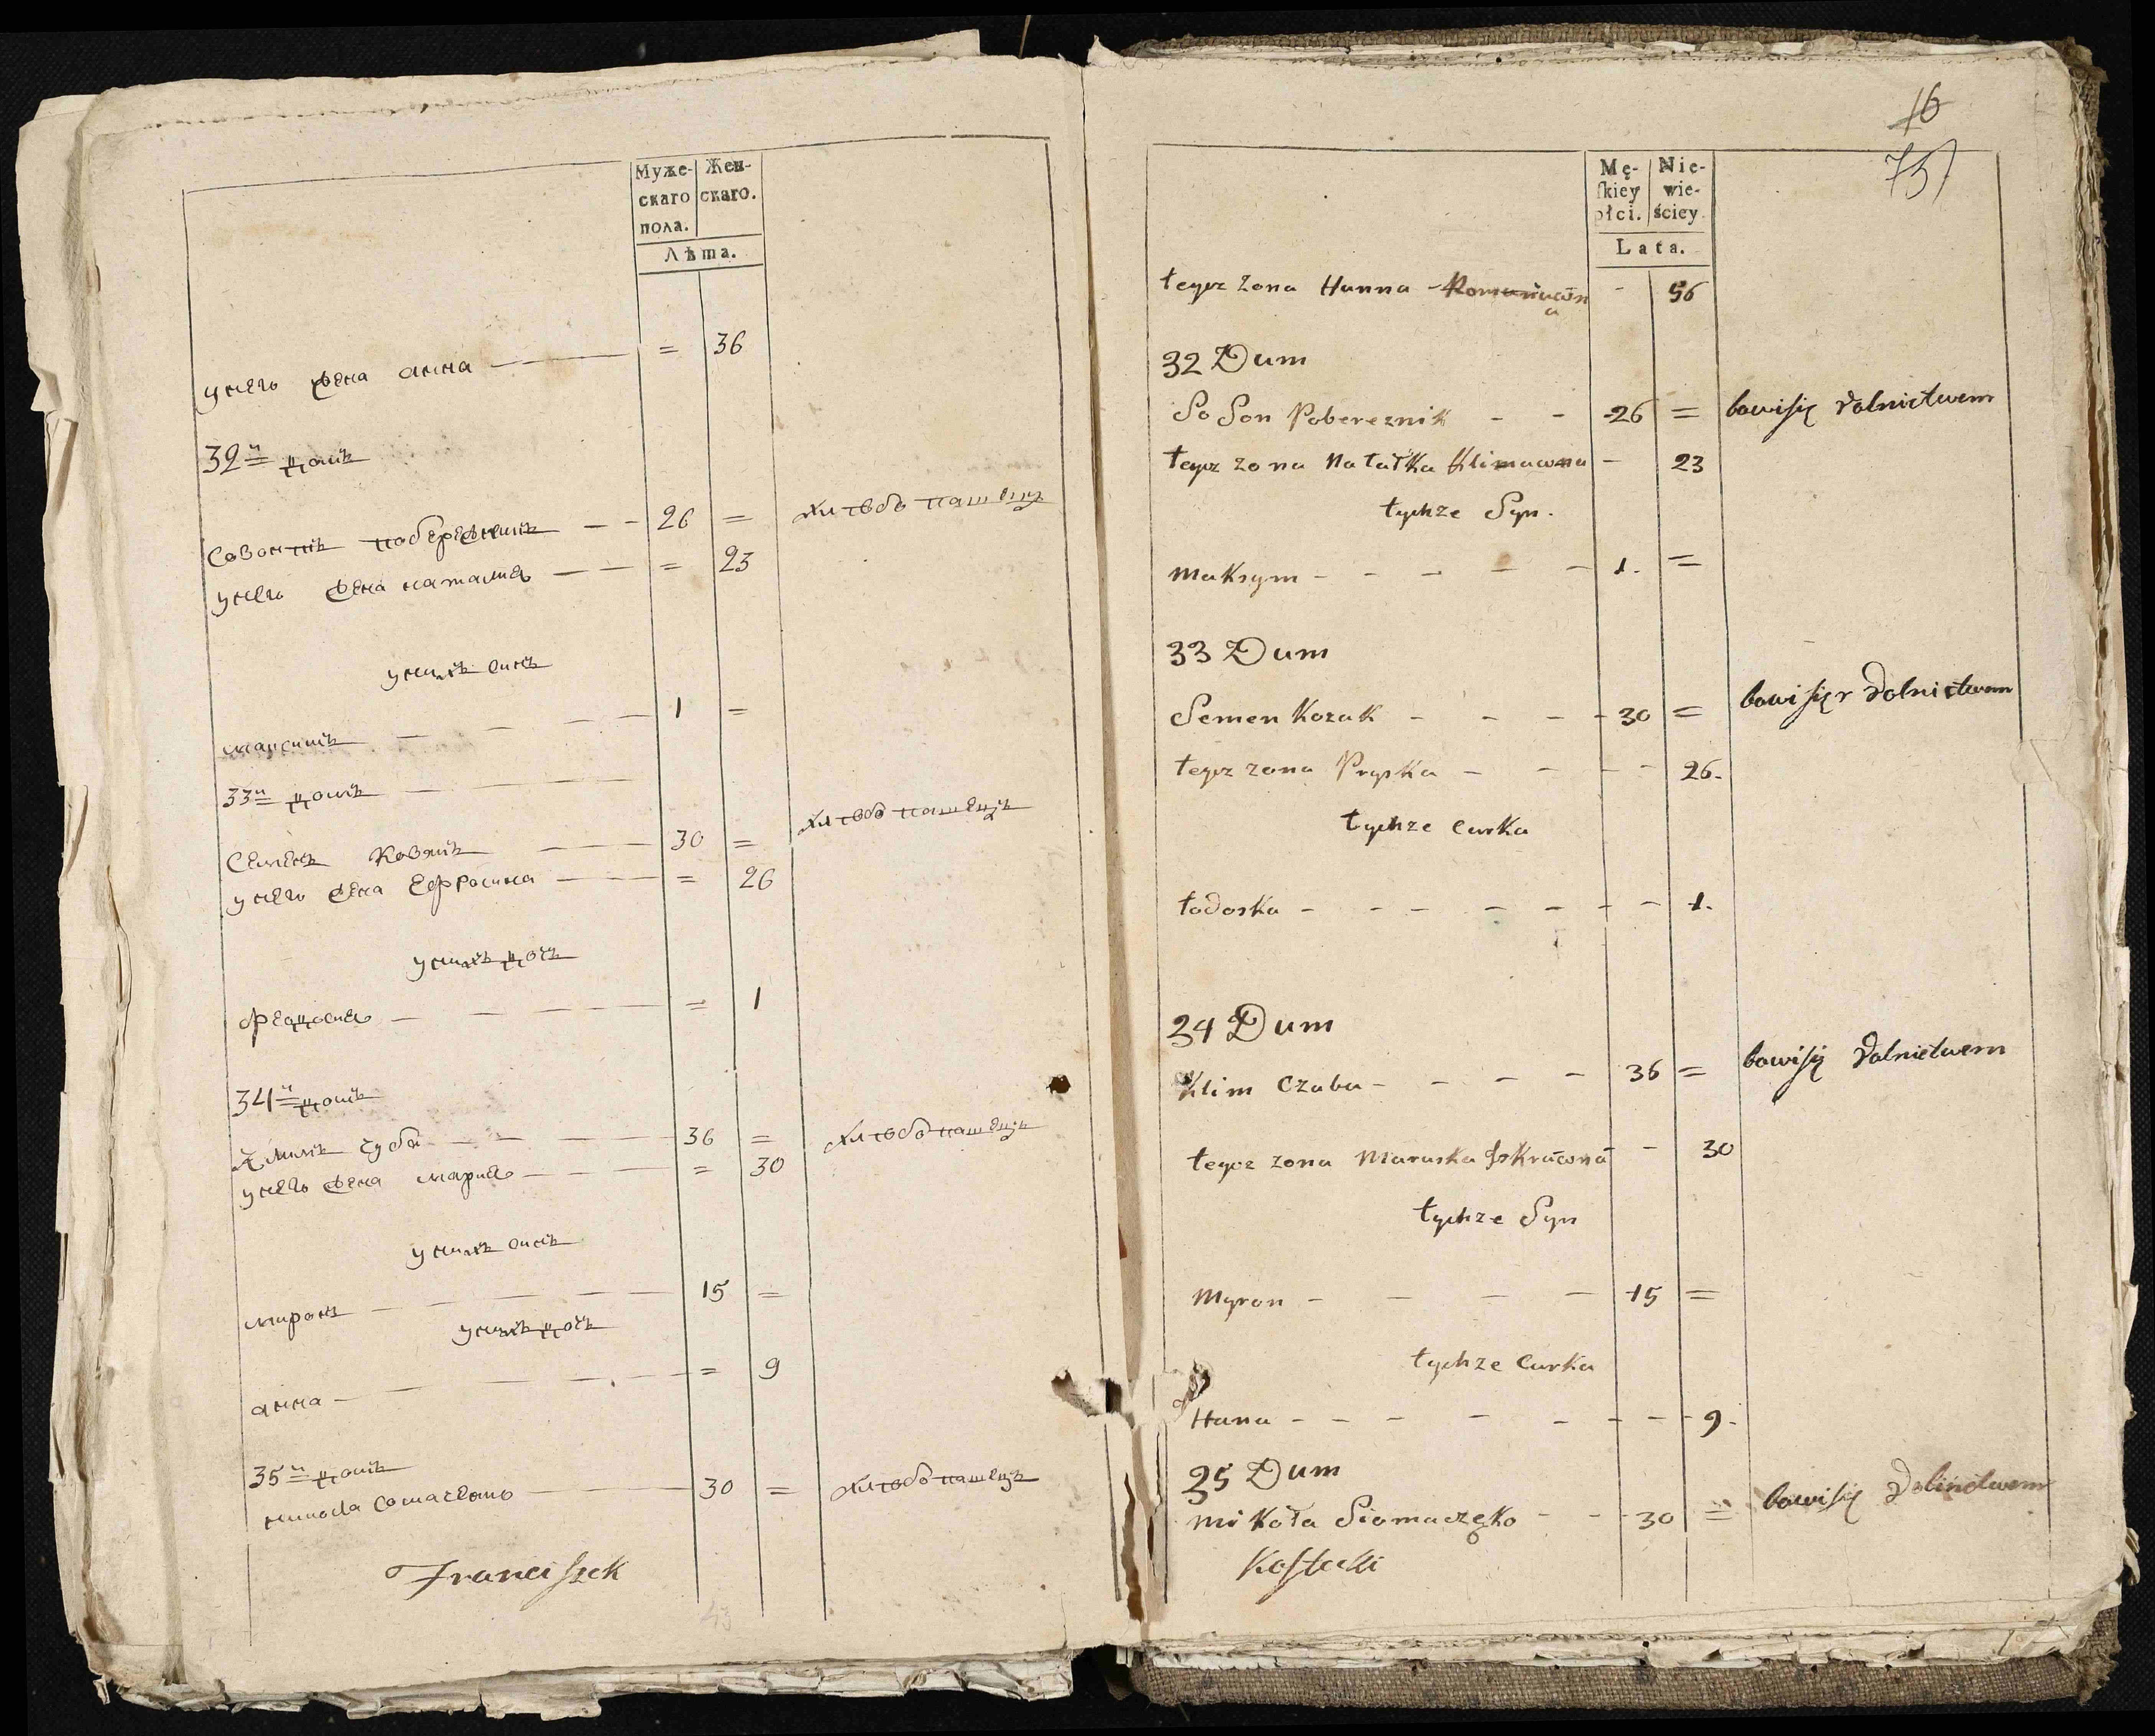 Муже-
скаго
пола.
Жен-
скаго.
Лѣта.
унего жена анна — = 36
32й домъ
Созонтъ побережникъ — 26 = хлѣбопашецъ
унего жена наталия — = 23
унихъ синъ
максимъ — 1 =
33й домъ
Семенъ Козакъ — 30 = хлѣбопашецъ
унего жена Ефросина — = 26
унихъ дочъ
феодосия — = 1
34й домъ
Климъ чуба — 36 = хлѣбопашецъ
унего жена мария — = 30
унихъ синъ
миронъ — 15 =
унихъ дочъ
анна — = 9
35й домъ
никола — 30 = хлѣбопашецъ
Franciszek
16
75
Mę-
skiey
płci.
Nie-
wie-
ściey.
Lata.
tegoz zona Hanna - 56
32 Dum
SoSon Pobereznik - - 26 = bawisię rolnictwem
tegoz zona Natałka Klimowna - 23
tychze Syn.
Maksym - - - - - 1. =
33 Dum
Semen Kozak - - - - 30 = bawisię rolnictwem
tegoz zona Pryska - - - - 26.
tychze Curka
todoska - - - - - - - 1.
34 Dum
Klim Czuba - - - - 36 = bawisię rolnictwem
tegoz zona Maruska - 30
tychze Syn
Myron - - - - 15 =
tychze Curka
Hana - - - - - - - - 9.
35 Dum
Mikoła Siomaczęko - - - 30 = bawisię rolinctwem
Kostecki